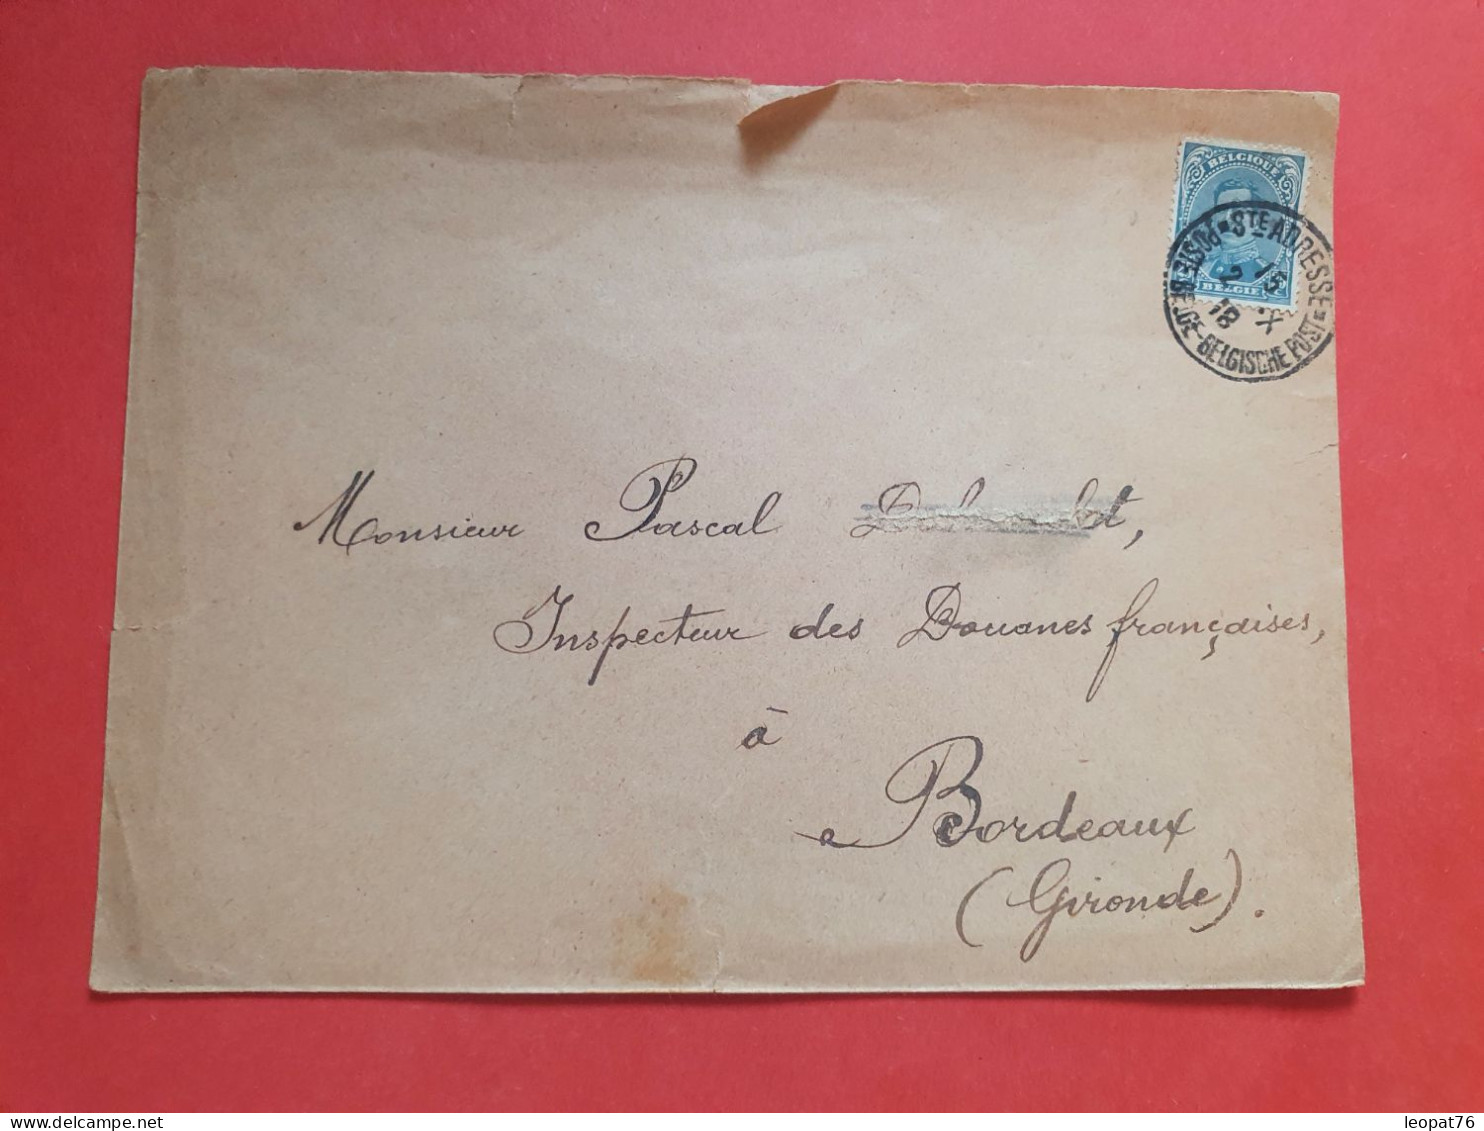 BELGIQUE
BELGIE
STE ADRESSE
POSTE BELGE-BELGISCHE POST
15
2 X
18
Monsieur Pascal
Inspecteur des Douanes françaises,
à
Bordeaux
(Gironde).
leopat76